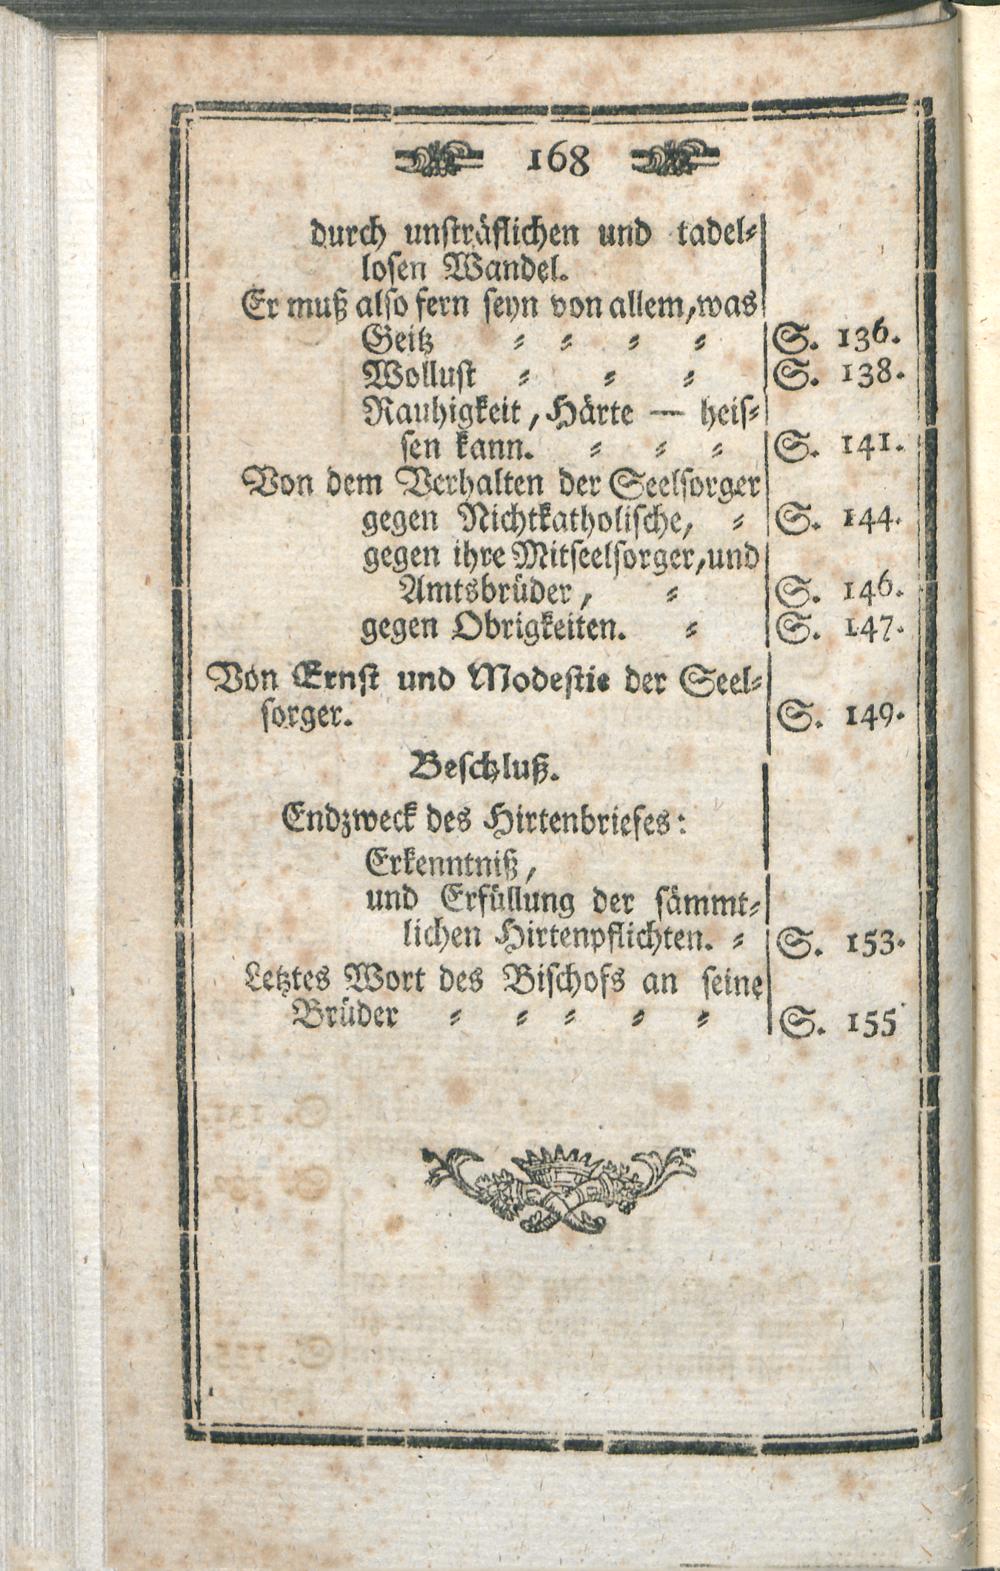 168
durch unsträflichen und tadel⸗
losen Wandel.
Er muß also fern seyn von allem, was
Geitz ⸗ ⸗ ⸗ ⸗ S. 136.
Wollust ⸗ ⸗ ⸗ S. 138.
Rauhigkeit, Härte — heis⸗
sen kann. ⸗ ⸗ ⸗ S. 141.
Von dem Verhalten der Seelsorger
gegen Nichtkatholische, ⸗ S. 144.
gegen ihre Mitseelsorger, und
Amtsbrüder, ⸗ S. 146.
gegen Obrigkeiten. ⸗ S. 147.
Von Ernst und Modestie der Seel⸗
sorger. S. 149.
Beschluß.
Endzweck des Hirtenbriefes:
Erkenntniß,
und Erfüllung der sämmt⸗
lichen Hirtenpflichten. ⸗ S. 153.
Letztes Wort des Bischofs an seine
Brüder ⸗ ⸗ ⸗ ⸗ ⸗ S. 155